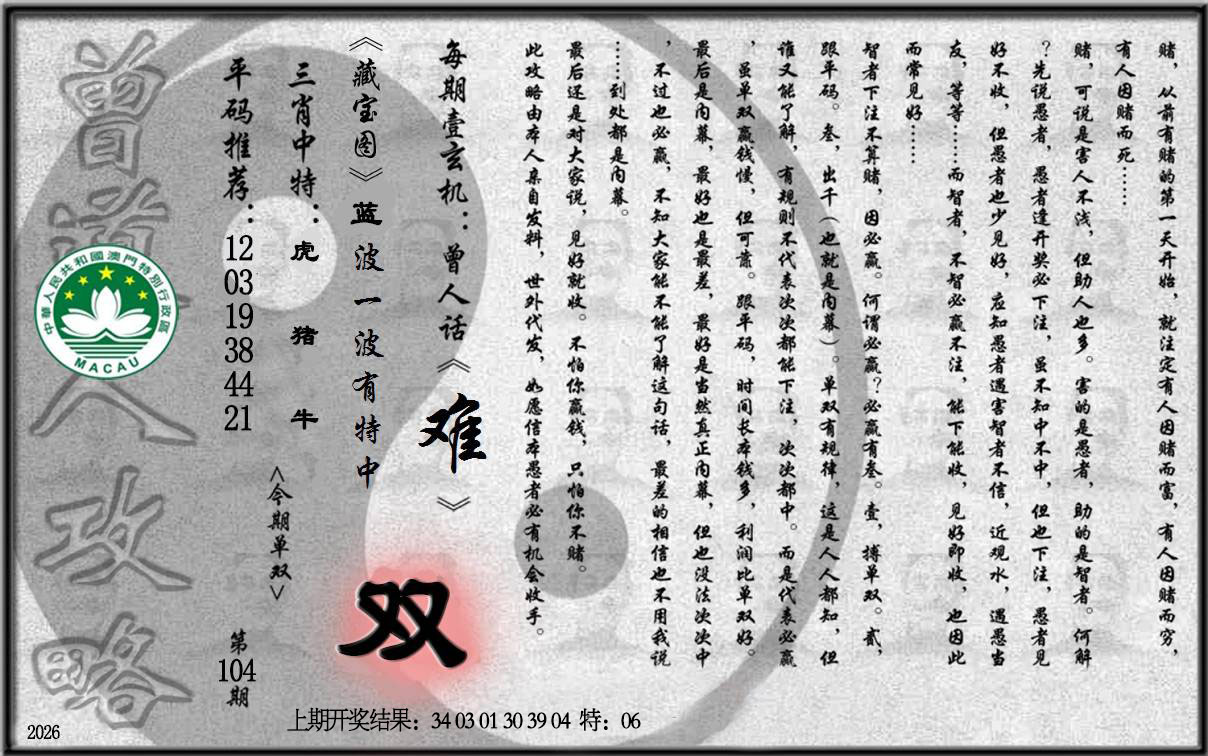 赌，从前有赌的第一天开始，就注定有人因赌而富，有人因赌而穷，
有人因赌而死……
赌，可说是害人不浅，但助人也多。害的是愚者，助的是智者。何解
？先说愚者，愚者逢开奖必下注，虽不知中不中，但也下注，愚者见
好不收，但愚者也少见好，应知愚者遇害智者不信，近观水，遇愚当
友，等等……而智者，不智必赢不注，能下能收，见好即收，也因此
而常见好……
智者下注不算赌，因必赢。何谓必赢？必赢有叁。壹，搏单双。贰，
跟平码。叁，出千（也就是内幕）。单双有规律，这是人人都知，但
谁又能了解，有规则不代表次次都能下注，次次都中。而是代表必赢
，虽单双赢钱慢，但可靠。跟平码，时间长本钱多，利润比单双好。
最后是内幕，最好也是最差，最好是当然真正内幕，但也没法次次中
，不过也必赢，不知大家能不能了解这句话，最差的相信也不用我说
……到处都是内幕。
最后还是对大家说，见好就收。不怕你赢钱，只怕你不赌。
此攻略由本人亲自发料，世外代发，如愿信本愚者必有机会收手。
每期壹玄机：曾人话《难》
《藏宝图》蓝波一波有特中
双
三肖中特：虎 猪 牛
<今期单双>
平码推荐：12 03 19 38 44 21
第104期
曾道人攻略
中華人民共和國澳門特別行政區
MACAU
上期开奖结果：34 03 01 30 39 04 特：06
2026